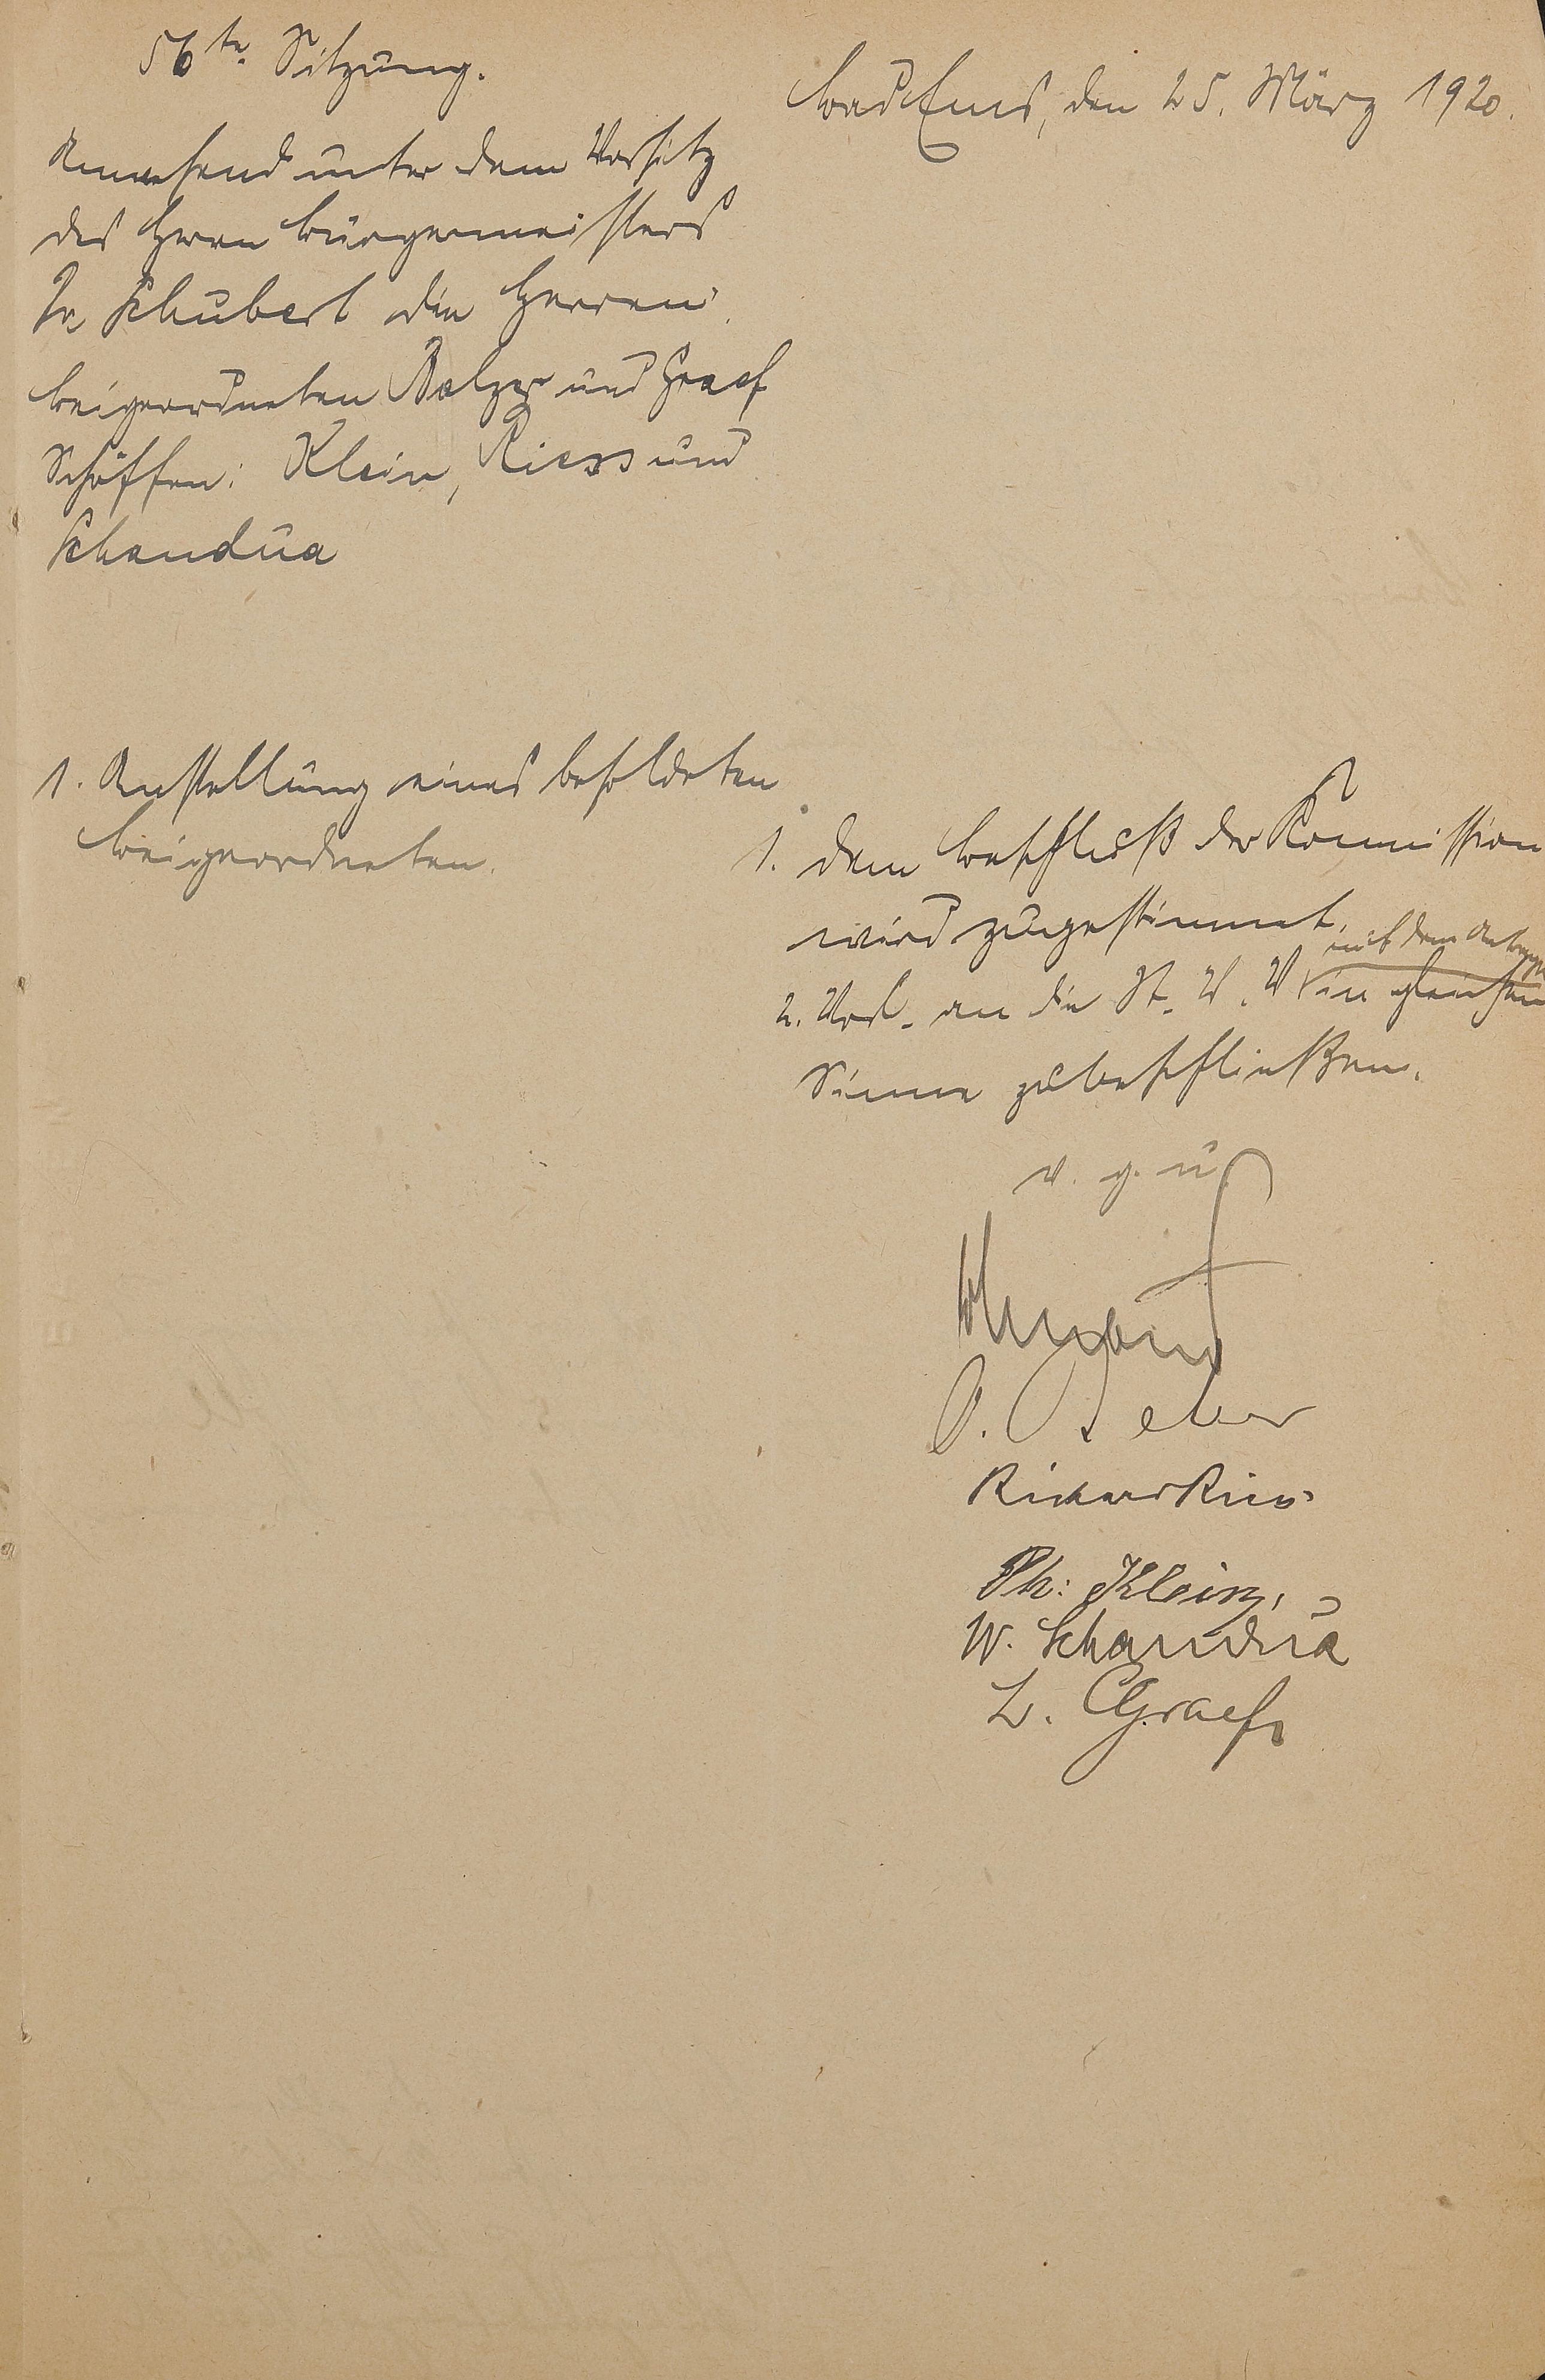 56te Sitzung.
Bad Ems, den 25. März 1920.
Anwesend unter dem Vorsitz
des Herrn Bürgermeisters
Dr Schubert die Herren
Beigeordneten Balzer und Graef
Schöffen: Klein, Riess und
Schandua
1. Anstellung eines besoldeten
Beigeordneten.
1. Dem Beschluß der Kommission
wird zugestimmt.
mit dem Antrage
2. Vorl. an die St. V. V in gleichem
Sinne zu beschließen.
v. g. u.
Richard Riess
Ph: Klein,
W. Schandua
L. Graef